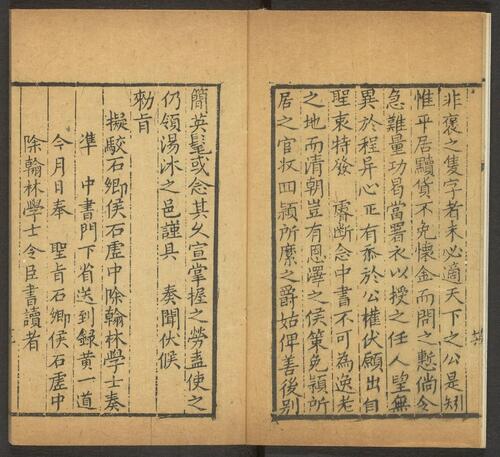 非褒之隻字者未必適天下之公是矧
惟平居黷貨不免懷金而問之慙倘令
急難量功曷當署衣以授之任人望無
異於程异心正有忝於公權伏願出自
聖衷特發 睿斷念中書不可為逸老
之地而清朝豈有恩澤之侯策免潁所
居之官收回潁所縻之爵姑俾善後别
簡英髦或念其久宣掌握之勞盍使之
仍領湯沐之邑謹具 奏聞伏候
勑旨
擬駮石鄉侯石虛中除翰林學士奏
準 中書門下省送到録黃一道
今月日奉 聖旨石鄉侯石虛中
除翰林學士令臣書讀者